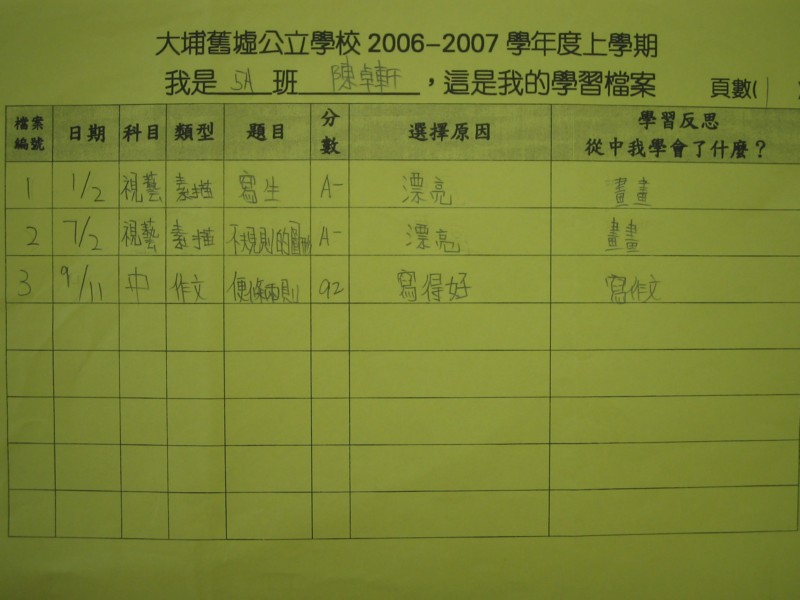 大埔舊墟公立學校 2006-2007 學年度上學期
我是 5A 班 陳卓軒 ，這是我的學習檔案 頁數( 1
檔案編號 日期 科目 類型 題目 分數 選擇原因 學習反思 從中我學會了什麼？
1 1/2 視藝 素描 寫生 A- 漂亮 畫畫
2 7/2 視藝 素描 不規則的 A- 漂亮 畫畫
3 9/11 中 作文 便條兩則 92 寫得好 寫作文